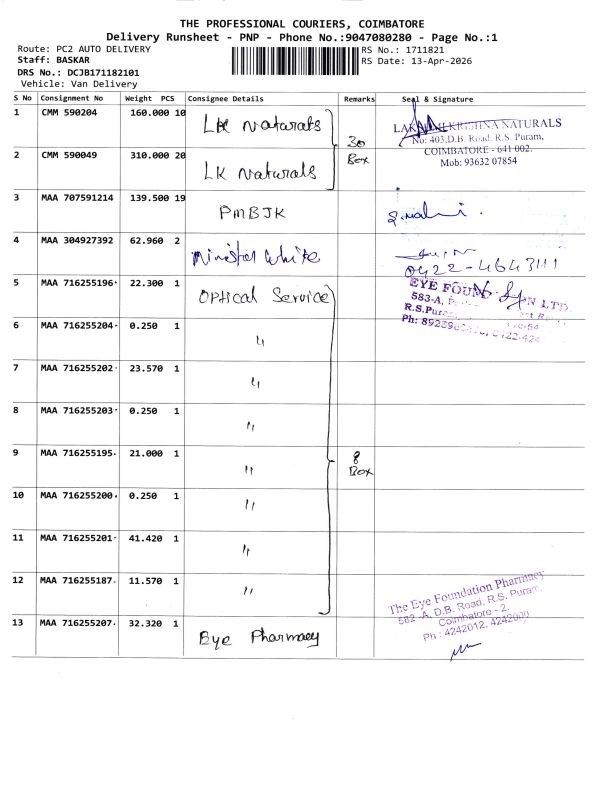 THE PROFESSIONAL COURIERS, COIMBATORE
Delivery Runsheet - PNP - Phone No.:9047080280 - Page No.:1
Route: PC2 AUTO DELIVERY
RS No.: 1711821
Staff: BASKAR
RS Date: 13-Apr-2026
DRS No.: DCJB171182101
Vehicle: Van Delivery
S No Consignment No Weight PCS Consignee Details Remarks Seal & Signature
1 CMM 590204 160.000 10 LK Naturals
LAKSHMI KRISHNA NATURALS
No: 403,D.B. Road, R.S. Puram,
COIMBATORE - 641 002.
Mob: 93632 07854
30
Box
2 CMM 590049 310.000 20 LK Naturals
3 MAA 707591214 139.500 19 PMBJK
4 MAA 304927392 62.960 2 Minister White
0422-4643111
5 MAA 716255196 22.300 1 Optical Service
EYE FOUN
LTD
583-A,
R.S.Puram
6 MAA 716255204 0.250 1 "
7 MAA 716255202 23.570 1 "
8 MAA 716255203 0.250 1 "
9 MAA 716255195 21.000 1 "
8
Box
10 MAA 716255200 0.250 1 "
11 MAA 716255201 41.420 1 "
12 MAA 716255187 11.570 1 "
The Eye Foundation Pharmacy
582 -A, D.B. Road, R.S. Puram,
Coimbatore - 2.
Ph : 4242012, 4242000
13 MAA 716255207 32.320 1 Eye Pharmacy